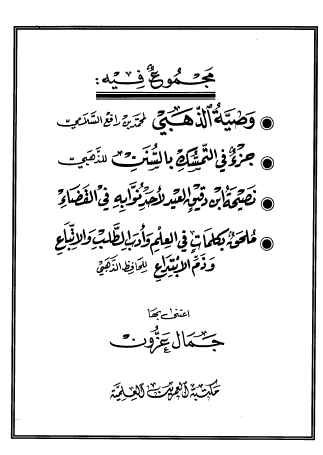 مجموع فيه :
● وصية الذهبي لمحمد بن رافع السلامي
● جزء في التمسك بالسنن للذهبي
● نصيحة ابن دقيق العيد لأحد نوابه في القضاء
● ملحق بكلمات في العلم وأدب الطلب والاتباع
وذم الابتداع للحافظ الذهبي
اعتنى بها
جمال عزون
مكتبة العمرين العلمية